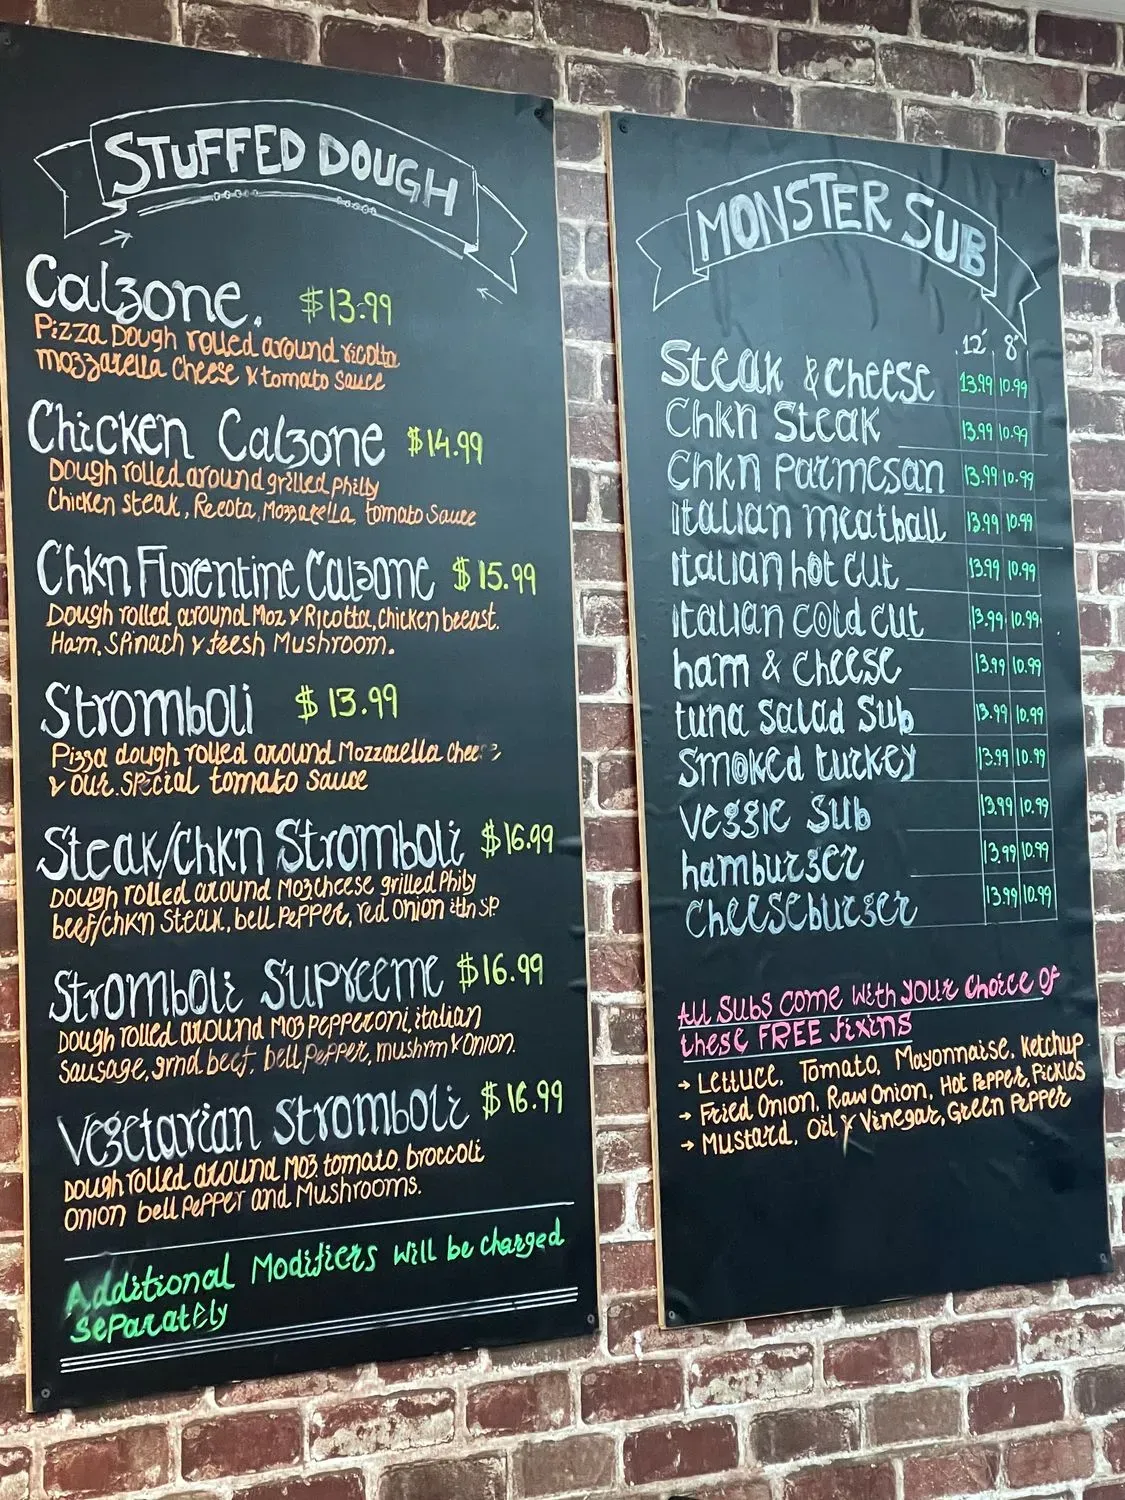 STUFFED DOUGH
Calzone. $13.99
Pizza Dough rolled around ricotta
mozzarella cheese & tomato sauce
Chicken Calzone $14.99
Dough rolled around grilled Philly
Chicken steak, Recota, Mozzarella, tomato sauce
Chkn Florentine Calzone $15.99
Dough rolled around Moz & Ricotta, chicken breast.
Ham, Spinach & fresh Mushroom.
Stromboli $13.99
Pizza dough rolled around Mozzarella chee
& our special tomato sauce
Steak/Chkn Stromboli $16.99
Dough rolled around Moz cheese grilled Phily
beef/chkn steak, bell pepper, red onion itln sp
Stromboli Supreeme $16.99
Dough rolled around Moz pepperoni, italian
sausage, grnd beef, bell pepper, mushrm & onion.
Vegetarian Stromboli $16.99
Dough rolled around Moz tomato, broccoli
onion bell pepper and Mushrooms.
Additional Modifiers will be charged
separately
MONSTER SUB
12" 8"
Steak & cheese 13.99 10.99
Chkn Steak 13.99 10.99
Chkn Parmesan 13.99 10.99
italian meatball 13.99 10.99
italian hot cut 13.99 10.99
italian cold cut 13.99 10.99
ham & cheese 13.99 10.99
tuna salad sub 13.99 10.99
smoked turkey 13.99 10.99
veggie sub 13.99 10.99
hamburger 13.99 10.99
Cheeseburger 13.99 10.99
All subs come with your choice of
these FREE fixins
→ Lettuce, Tomato, Mayonnaise, Ketchup
→ Fried Onion, Raw Onion, Hot Pepper, Pickles
→ Mustard, Oil & Vinegar, Green Pepper